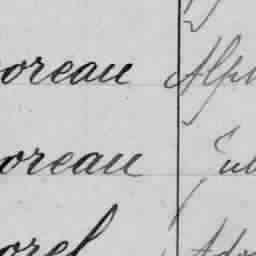 oreau Alph
oreau Jul
orel Ado